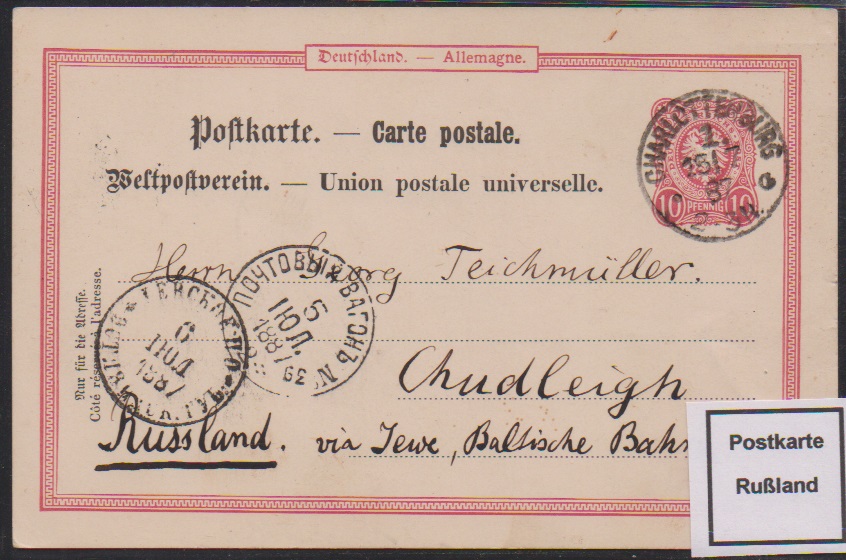 Deutschland. — Allemagne.
Postkarte. — Carte postale.
Weltpostverein. — Union postale universelle.
CHARLOTTENBURG
10 PFENNIG 10
Herrn Georg Teichmüller.
ПОЧТОВЫЙ ВАГОНЪ №
5
ІЮЛ.
1887
6
ІЮЛ
1887
Nur für die Adresse.
Côté réservé à l'adresse.
Chudleigh
Russland. via Jewe, Baltische Bahn
Postkarte
Rußland